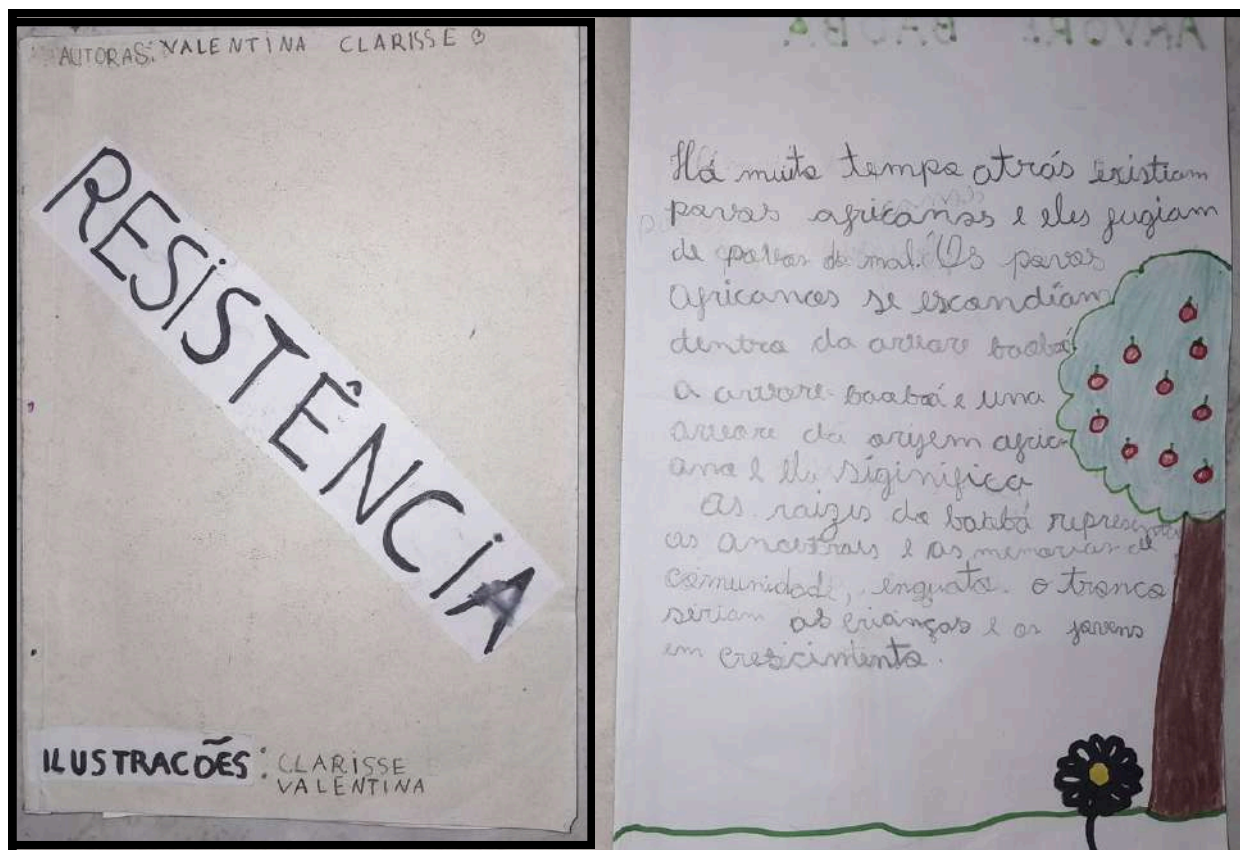 AUTORAS: VALENTINA CLARISSE
RESISTÊNCIA
ILUSTRACÕES: CLARISSE
VALENTINA
ARVORE BAOBA
Há muito tempo atrás existiam
povos africanos e eles fugiam
de povos do mal. Os povos
africanos se escondiam
dentro da arvore baobá
a arvore baobá e uma
arvore da orijem afric
ana e ela siginifica
As raízes do baobá
os ancetrais e as memorias de
comunidade, enquato o tronco
seriam as crianças e os jovens
em crescimento.